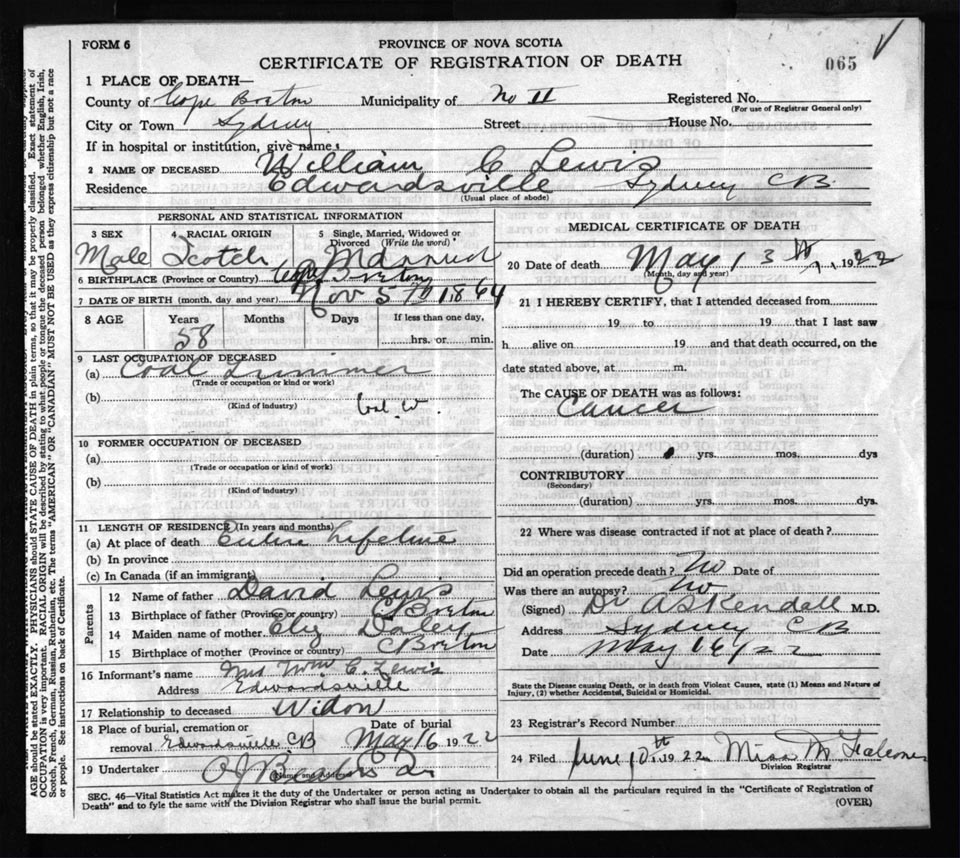 FORM 6
PROVINCE OF NOVA SCOTIA
CERTIFICATE OF REGISTRATION OF DEATH
065
1 PLACE OF DEATH—
County of Cape Breton Municipality of No 11 Registered No.
(For use of Registrar General only)
City or Town Sydney Street House No.
If in hospital or institution, give name
2 NAME OF DECEASED William C Lewis
Residence Edwardsville Sydney CB
(Usual place of abode)
PERSONAL AND STATISTICAL INFORMATION
3 SEX 4 RACIAL ORIGIN 5 Single, Married, Widowed or Divorced (Write the word)
Male Scotch Married
6 BIRTHPLACE (Province or Country) Cape Breton
7 DATE OF BIRTH (month, day and year) Nov 5th 1864
8 AGE Years Months Days If less than one day,
58 hrs. or min.
9 LAST OCCUPATION OF DECEASED
(a) Coal Trimmer
(Trade or occupation or kind or work)
(b)
(Kind of industry)
10 FORMER OCCUPATION OF DECEASED
(a)
(Trade or occupation or kind of work)
(b)
(Kind of industry)
11 LENGTH OF RESIDENCE (In years and months)
(a) At place of death Entire Lifetime
(b) In province
(c) In Canada (if an immigrant)
Parents
12 Name of father David Lewis
13 Birthplace of father (Province or country) C Breton
14 Maiden name of mother Eliz Daley
15 Birthplace of mother (Province or country) C Breton
16 Informant's name Mrs Wm C. Lewis
Address Edwardsville
17 Relationship to deceased Widow
18 Place of burial, cremation or removal Edwardsville CB Date of burial May 16 1922
19 Undertaker
(Name and Address)
MEDICAL CERTIFICATE OF DEATH
20 Date of death May 13th 1922
(Month, day and year)
21 I HEREBY CERTIFY, that I attended deceased from
19 to 19 that I last saw
h alive on 19 and that death occurred, on the
date stated above, at m.
The CAUSE OF DEATH was as follows:
Cancer
(duration) yrs. mos. dys
CONTRIBUTORY
(Secondary)
(duration) yrs. mos. dys.
22 Where was disease contracted if not at place of death?
Did an operation precede death? No Date of
Was there an autopsy? No
(Signed) Dr A S Kendall M.D.
Address Sydney CB
Date May 16/22
State the Disease causing Death, or in death from Violent Causes, state (1) Means and Nature of
Injury, (2) whether Accidental, Suicidal or Homicidal.
23 Registrar's Record Number
24 Filed June 10th 1922 Miss M
Division Registrar
SEC. 46—Vital Statistics Act makes it the duty of the Undertaker or person acting as Undertaker to obtain all the particulars required in the "Certificate of Registration of
Death" and to fyle the same with the Division Registrar who shall issue the burial permit.
(OVER)
AGE should be stated EXACTLY. PHYSICIANS should STATE CAUSE OF DEATH in plain terms, so that it may be properly classified. Exact statement of
OCCUPATION is very important. RACIAL ORIGIN will be described by stating to what people or tongue the deceased person belonged whether English, Irish,
Scotch, French, German, Russian, Ruthenian, etc. The terms "AMERICAN" OR "CANADIAN" MUST NOT BE USED as they express citizenship but not a race
or people. See instructions on back of Certificate.